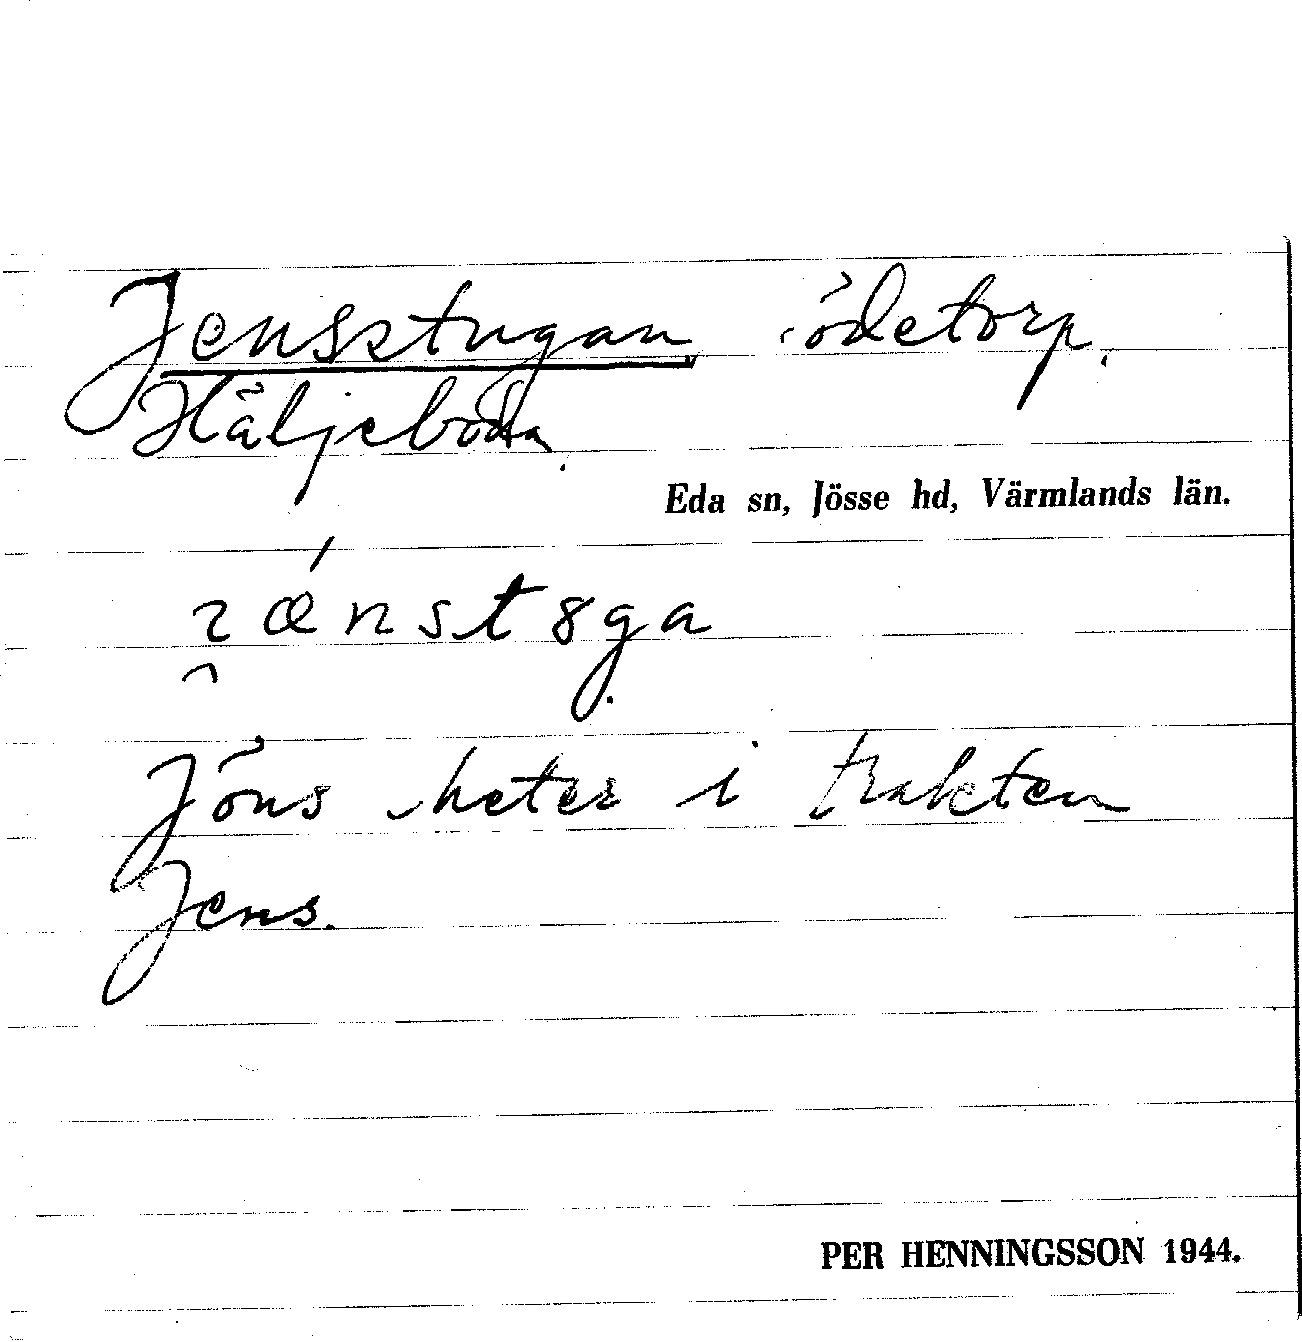 Jensstugan ödetorp.
Häljeboda.
Eda sn, Jösse hd, Värmlands län.
Jöns heter i trakten
Jens.
PER HENNINGSSON 1944.